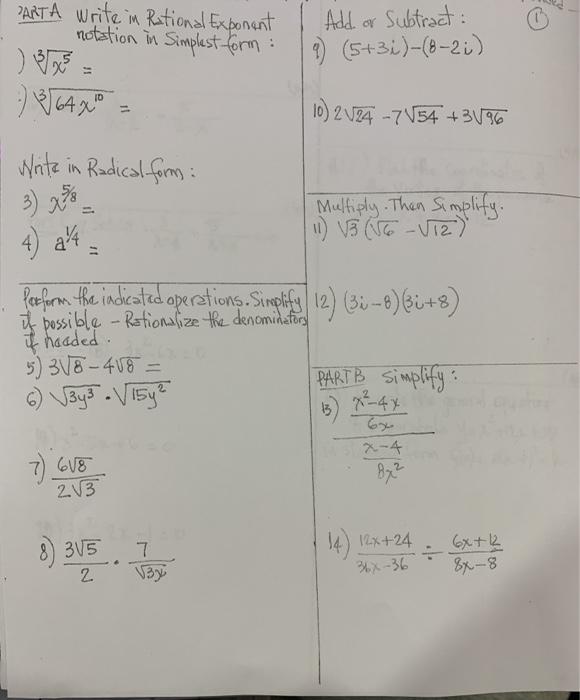 PART A Write in Rational Exponent
notation in Simplest form :
) ∛x⁵ =
:) ∛64x¹⁰ =
Write in Radical form :
3) x^5/8 =
4) a^1/4 =
Perform the indicated operations. Simplify
if possible - Rationalize the denominators
if needed.
5) 3√8 - 4√8 =
6) √3y³ · √15y²
7) 6√8
2√3
8) 3√5 · 7
2 √3x
Add or Subtract :
①
9) (5+3i)-(8-2i)
10) 2√24 - 7√54 + 3√96
Multiply. Then Simplify.
11) √3 (√6 - √12)
12) (3i-8)(3i+8)
PART B Simplify :
13) x²-4x
6x
x-4
8x²
14) 12x+24 ÷ 6x+12
36x-36 8x-8